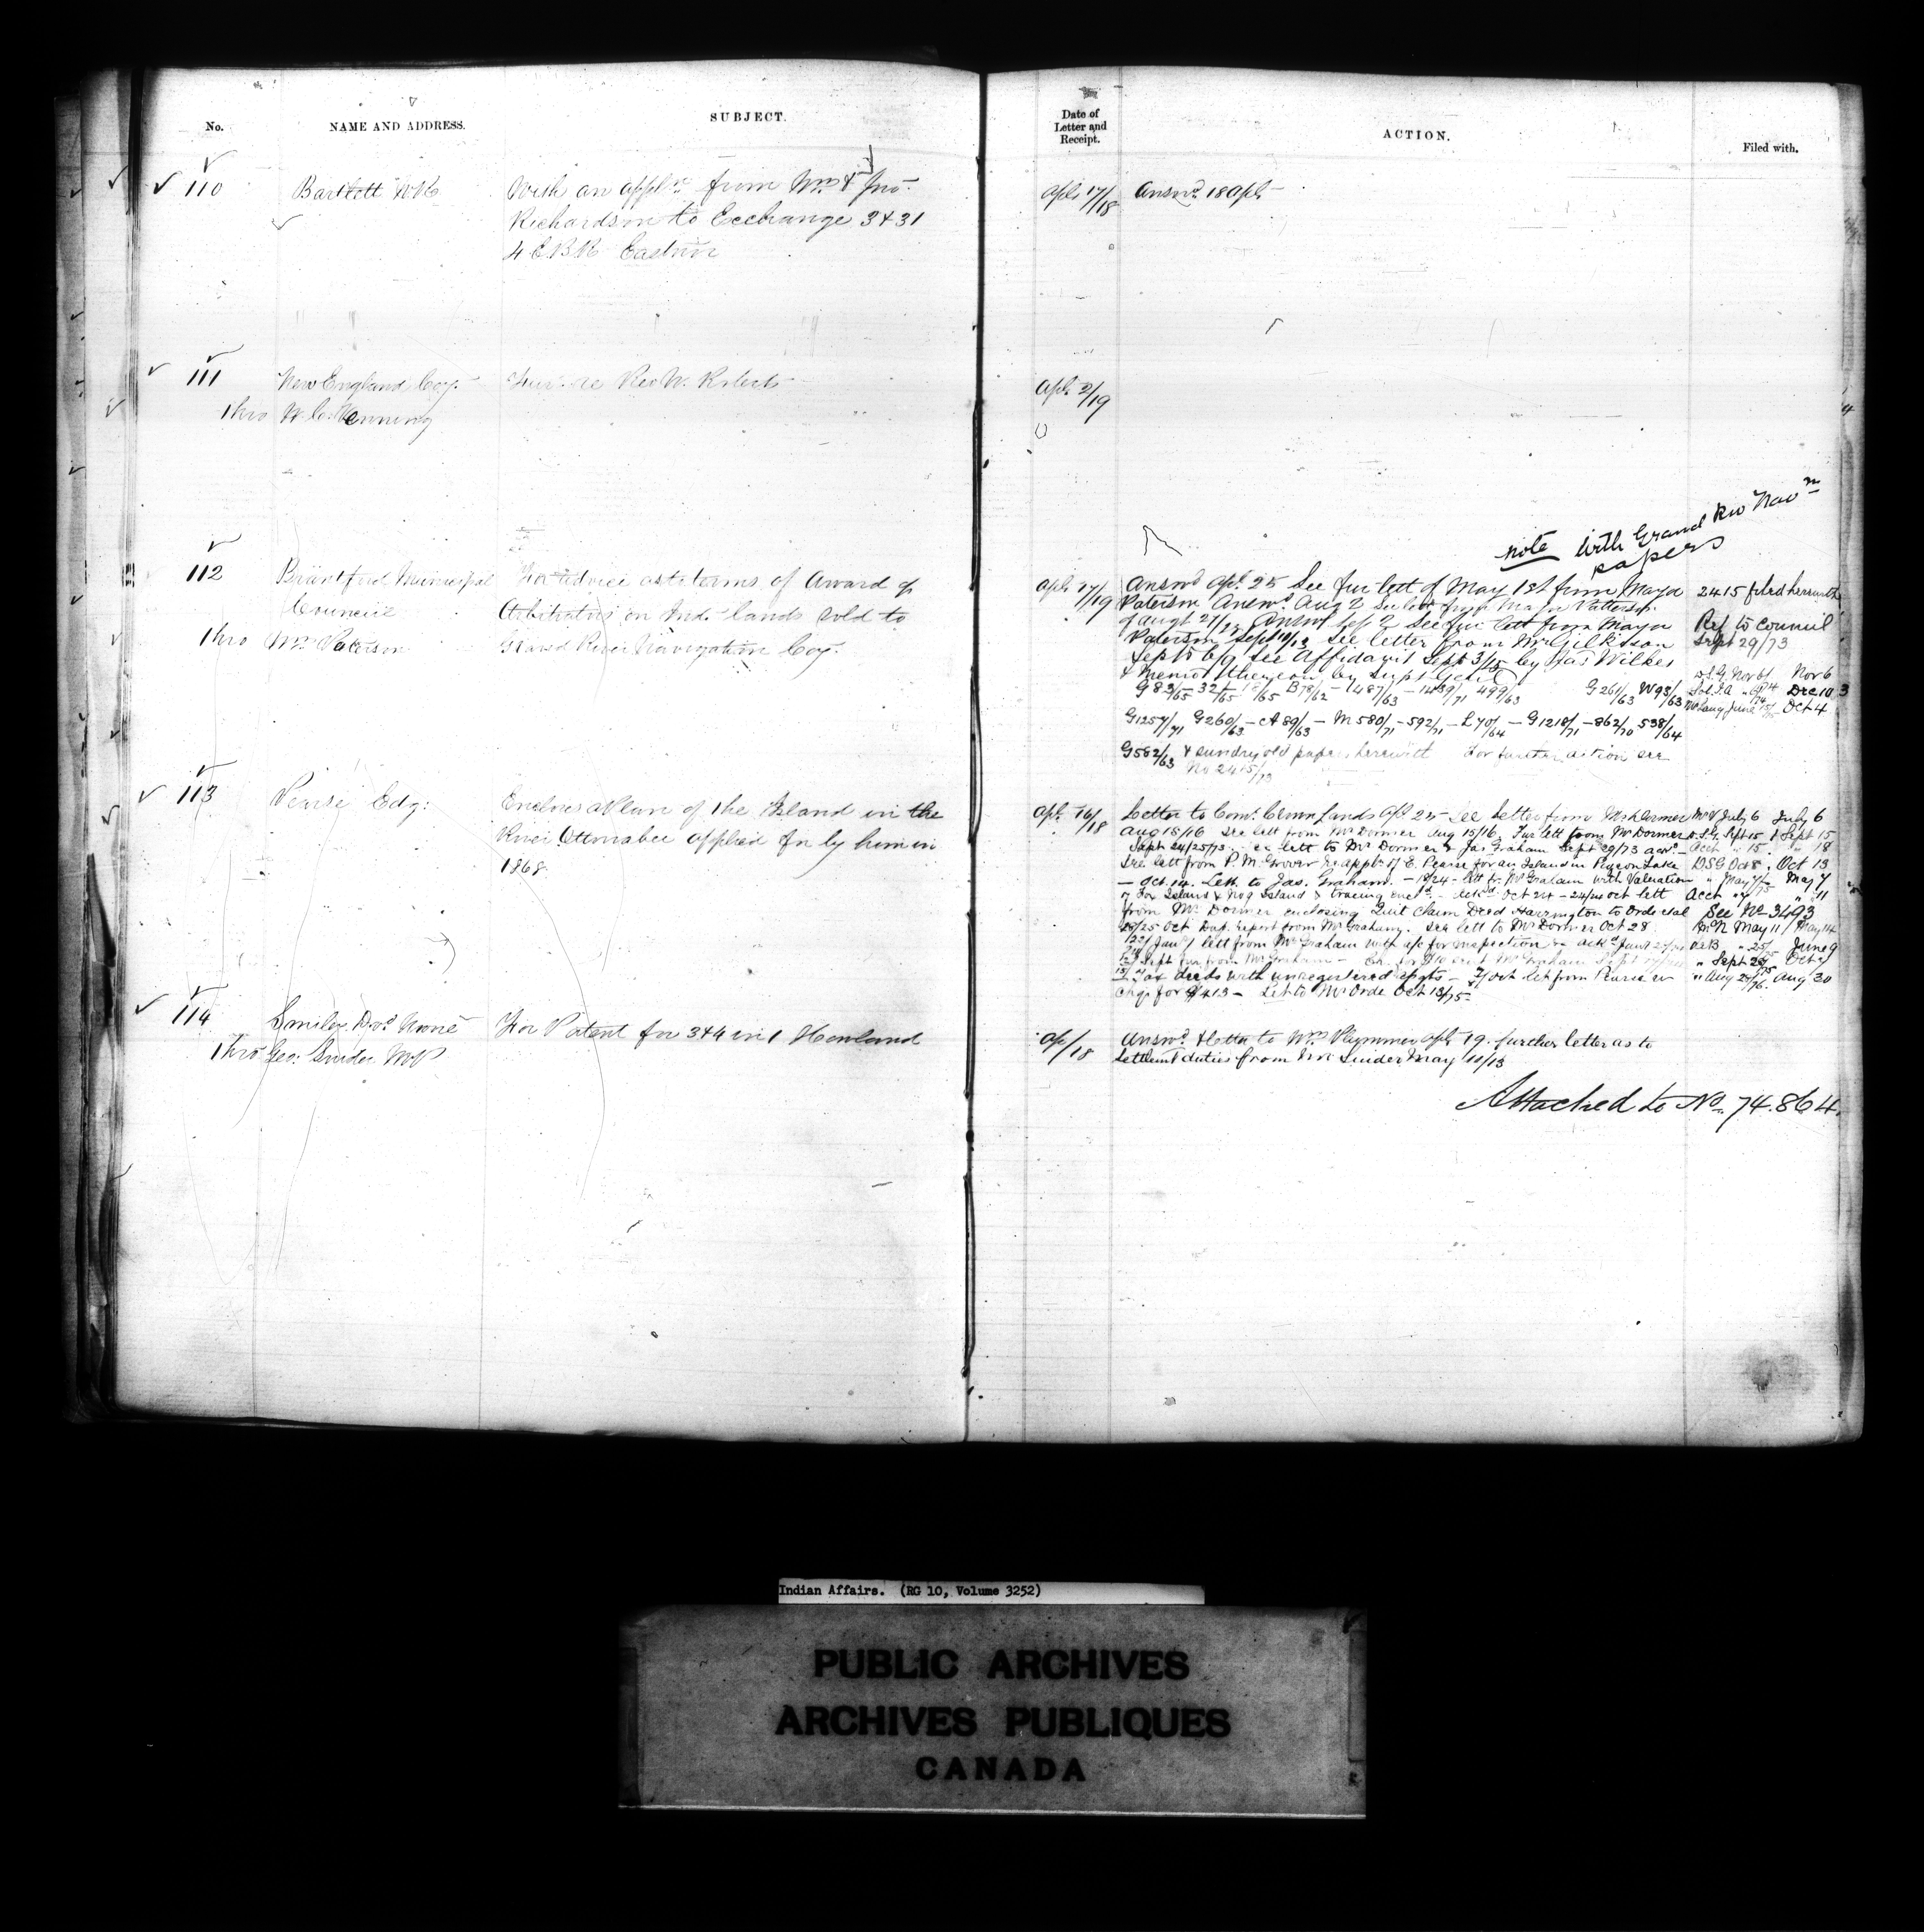 No.
NAME AND ADDRESS.
SUBJECT.
110
Bartlett W.R.
With an appln from Wm & Jno.
Richardson to Exchange 3 & 31
4 E.B.R. Eastnor
111
New England Coy.
Thro W. C. Venning
Furr. re Rev W. Roberts
112
Brantford Municipal
Council
Thro Mr. Paterson
For advice as to terms of Award of
Arbitrators on Ind. lands sold to
Grand River Navigation Coy.
113
Pearse Edg:
Encloses a Plan of the Island in the
River Ottonabee applied for by him in
1868.
114
Smiley, Dvd
Thro Geo. Snider M.P
For Patent for 3 & 4 in 1 Howland
Date of
Letter and
Receipt.
ACTION.
Filed with.
Apl. 17/18
Answd. 18 Apl.
Apl. 2/19
note with Grand Riv Navn
papers
Apl. 17/19
Answd Apl. 25 See fur lett of May 1st from Mayor
Paterson Answd. Aug 2 See lett from Mayor Patterson
of Augt 27/ Answd Sep 2 See fur lett from Mayor
Paterson Sept 11/13 See letter from Mr Gilkison
Sept 5 6/9 See Affidavit Sept 3/15 by Jas Wilkes
& Memo thereon by Supt Genl
G 83/65 32/65 /65 B78/62 - 487/63 - 1439/71 499/63 G 261/63 W93/63
G1257/71 G260/63 - A 89/63 - M 580/71 - 592/71 - L 70/64 - G 1218/71 - 862/70 538/64
G582/63 & sundry old papers herewith For further action see
No 2415/73
2415 filed herewith
Ref to Council
Sept 29/73
D.S.G. Nov 6 Nov 6
Dec 10 3
June 15/75 Oct 4
Apl. 16/18
Letter to Com. Crown Lands Apl 25 - See Letter from Mr Dormer
Aug 15/16 See lett from Mr Dormer Aug 15/16. Fur lett from Mr Dormer
Sept 24/25/73. lett to Mr Dormer & Jas Graham Sept 29/73
See lett from P. M. Grover re appln of E. Pearse for an Island in Pigeon Lake
- Oct. 14. Lett. to Jas. Graham. - 18/24 - lett fr. Mr Graham with Valuation
of Fox Island & Hog Island & tracing encd. - Ackd Oct 24 - 24/ Oct lett
from Mr. Dormer enclosing Quit Claim Deed Harrington to Orde
25 Oct Dup. report from Mr Graham. See lett to Mr Dormer Oct 28
lett from Mr Graham with a/c for inspection
Sept fur from Mr Graham
deeds with unregistered - Oct let from Pearse
Chq. for $413 - Let to Mr Orde Oct 13/75
July 6 July 6
D.S.G. Sept 15 Sept 15
Acct " 15 " 18
D.S.G Oct 8. Oct 13
" May 7/75 May 7
Acct " 7 " 11
See No 3493
May 11 May 14
" 25/ June 9
" Sept 28/75 Oct
" Aug 29/76. Aug 30
Ap/18
Answd & letter to Wm Plummer Apl 19. further letter as to
Settlemt duties from Mr Snider May 11/13
Attached to No. 74.864.
Indian Affairs. (RG 10, Volume 3252)
PUBLIC ARCHIVES
ARCHIVES PUBLIQUES
CANADA